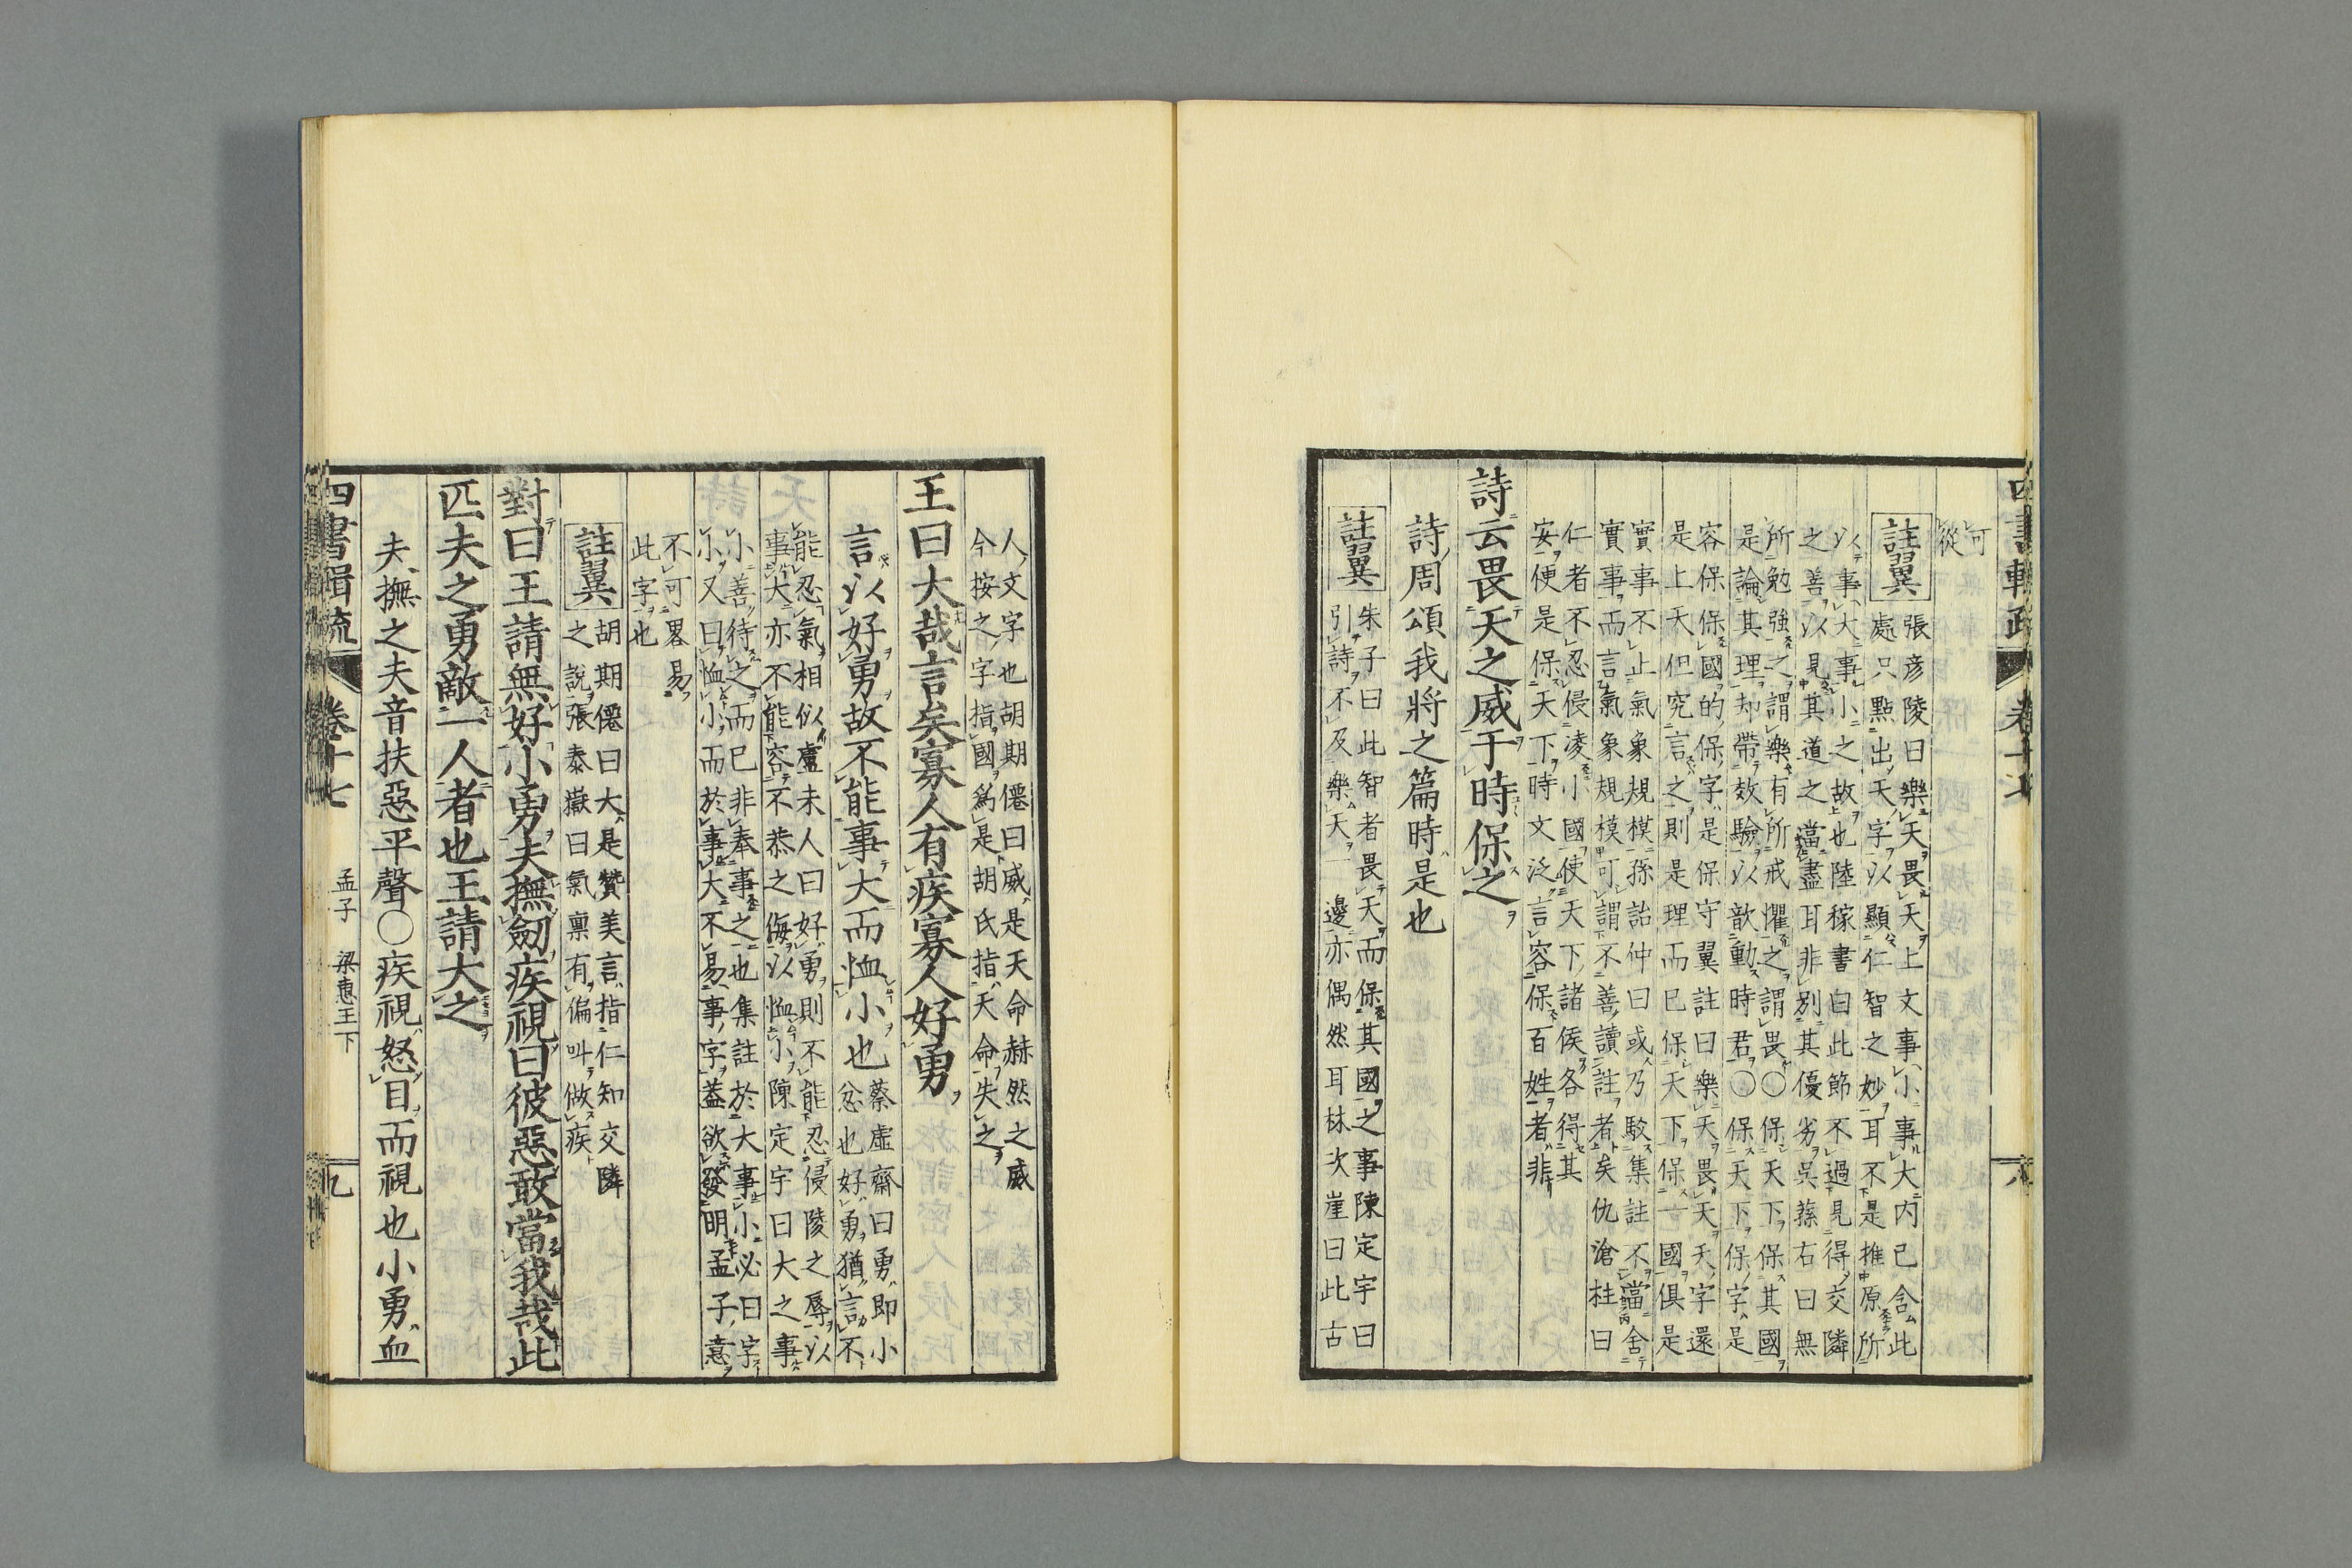 可
從
註翼
張彦陵曰樂天畏天上文事小事大内已含此
處只點出天字以顯仁智之妙耳不是推原所
以事大事小之故也陸稼書曰此節不過見得交隣
之善以見其道之當盡耳非别其優劣吳蓀右曰無
所勉強之謂樂有所戒懼之謂畏〇保天下保其國
是論其理却帶效驗以歆動時君〇保天下保字是
容保保國的保字是保守翼註曰樂天畏天天字還
是上天但究言之則是理而已保天下保一國俱是
實事不止氣象規模孫詒仲曰或乃駁集註不當舍
實事而言氣象規模可謂不善讀註者矣仇滄柱曰
仁者不忍侵凌小國使天下諸侯各得其
安便是保天下時文泛言容保百姓者非
詩云畏天之威于時保之
詩周頌我將之篇時是也
註翼
朱子曰此智者畏天而保其國之事陳定宇曰
引詩不及樂天一邊亦偶然耳林次崖曰此古
人文字也胡期僊曰威是天命赫然之威
今按之字指國爲是胡氏指天命失之
王曰大哉言矣寡人有疾寡人好勇
言以好勇故不能事大而恤小也
蔡虚齋曰勇即小
忿也好勇猶言不
能忍氣相似盧未人曰好勇則不能忍侵陵之辱以
事大亦不能容不恭之侮以恤小陳定宇曰大之事
小善待之而已非奉事之也集註於大事小必曰字
小又曰恤小而於事大不易事字蓋欲發明孟子意
不可畧易
此字也
註翼
胡期僊曰大是贊美言指仁知交隣
之說張泰嶽曰氣禀有偏叫做疾
對曰王請無好小勇夫撫劒疾視曰彼惡敢當我哉此
匹夫之勇敵一人者也王請大之
夫撫之夫音扶惡平聲〇疾視怒目而視也小勇血
四書輯疏
卷十七
孟子 梁惠王下
九